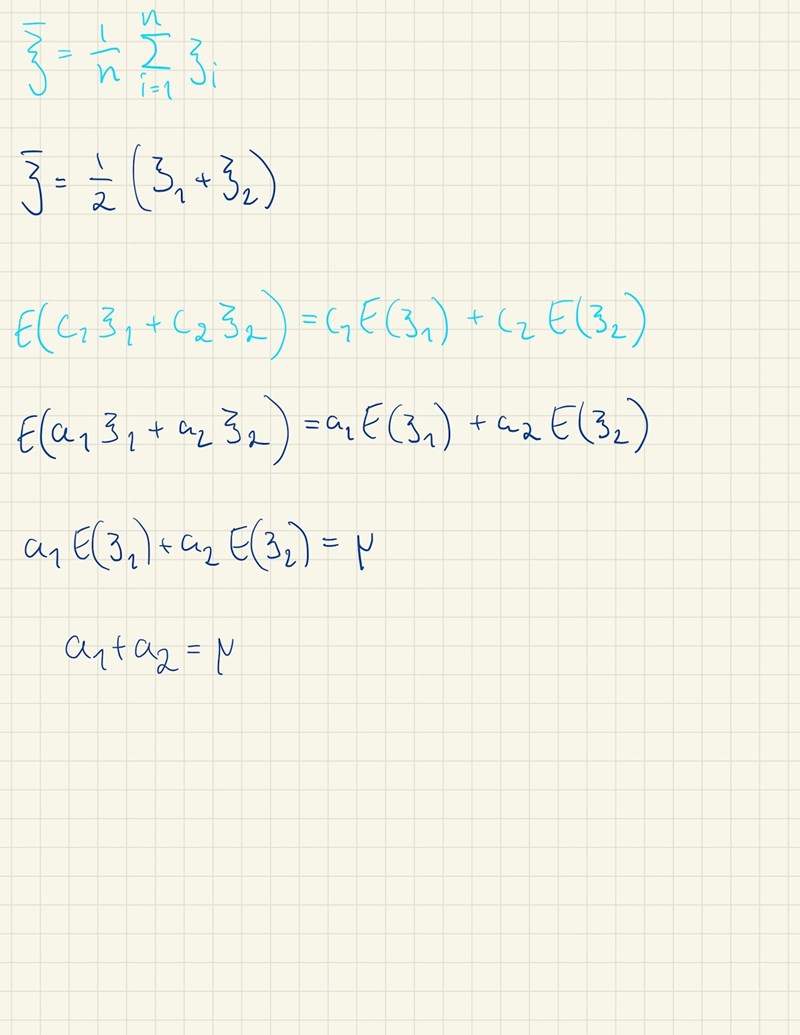 ξ̄ = 1/n Σ_{i=1}^{n} ξ_i
ξ̄ = 1/2 (ξ_1 + ξ_2)
E(c_1 ξ_1 + c_2 ξ_2) = c_1 E(ξ_1) + c_2 E(ξ_2)
E(a_1 ξ_1 + a_2 ξ_2) = a_1 E(ξ_1) + a_2 E(ξ_2)
a_1 E(ξ_1) + a_2 E(ξ_2) = μ
a_1 + a_2 = μ